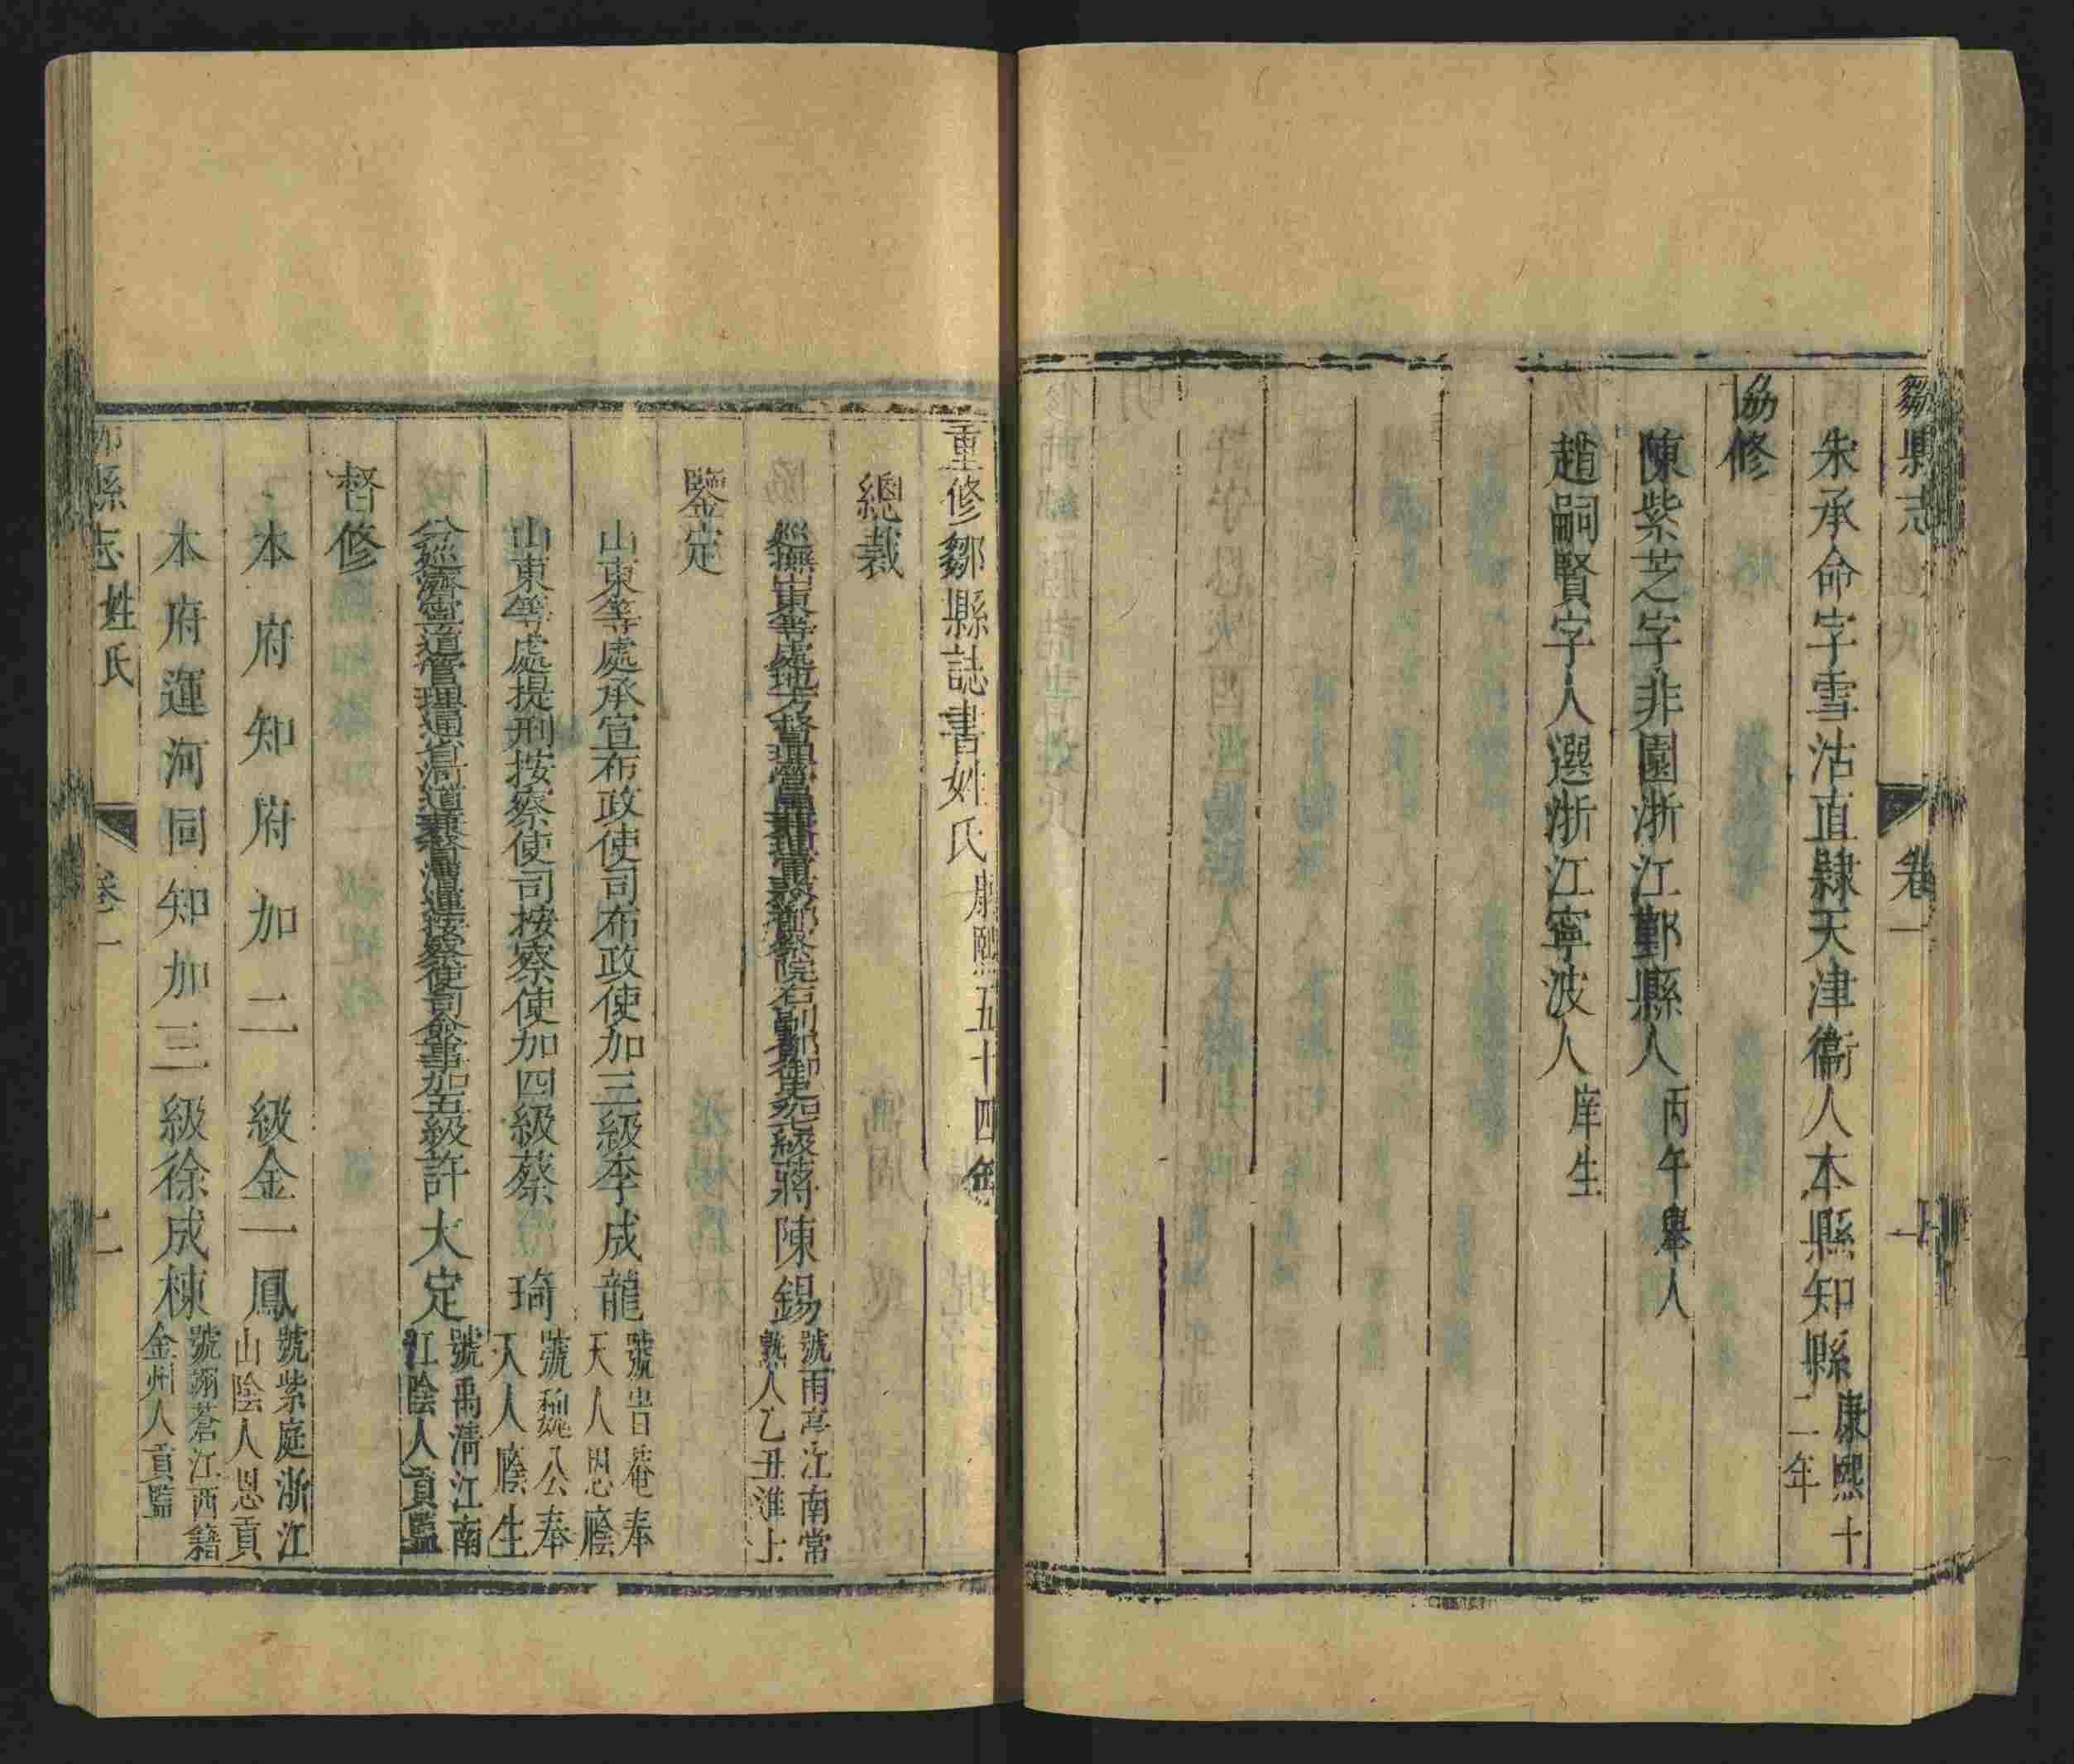 鄒縣志 卷一
朱承命字雪沽直隸天津衞人本縣知縣康熙十二年
協修
陳紫芝字非園浙江鄞縣人丙午舉人
趙嗣賢字人選浙江寧波人庠生
重修鄒縣誌書姓氏康熙五十四年
總裁
廵撫山東等處地方督理營田兼理軍務都察院右副都御史加一級蔣陳錫號雨亭江南常熟人乙丑進士
鑒定
山東等處承宣布政使司布政使加三級李成龍號峕菴奉天人恩廕
山東等處提刑按察使司按察使加四級蔡琦號魏公奉天人廕生
分廵濟寧道管理通省河道兼督漕運按察使司僉事加五級許大定號禹淸江南江陰人貢監
督修
本府知府加二級金一鳳號紫庭浙江山陰人恩貢
本府運河同知加三級徐成棟號嶰蒼江西籍金州人貢監
縣志 姓氏 卷一 二